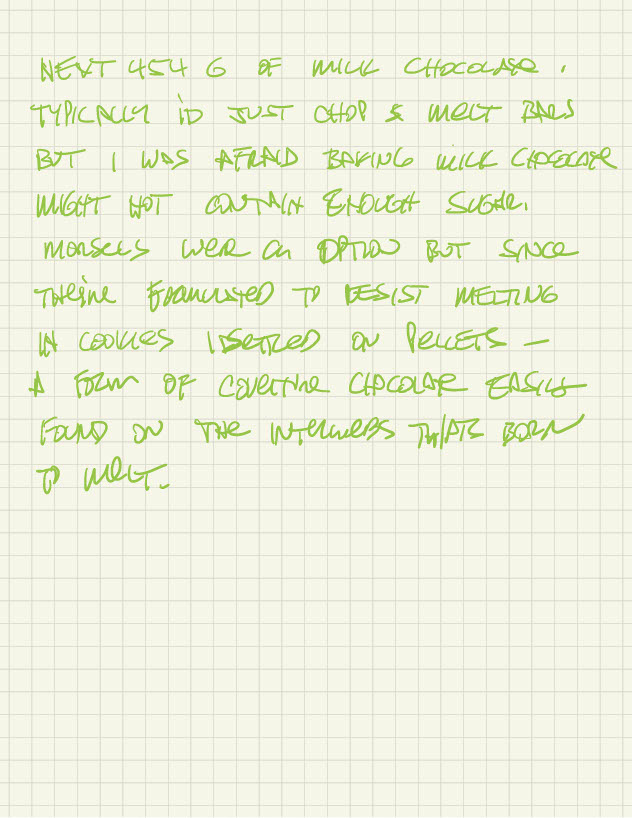 NEXT 454 G OF MILK CHOCOLATE.
TYPICALLY I'D JUST CHOP & MELT BARS
BUT I WAS AFRAID BAKING MILK CHOCOLATE
MIGHT NOT CONTAIN ENOUGH SUGAR.
MORSELS WERE AN OPTION BUT SINCE
THEY'RE FORMULATED TO RESIST MELTING
IN COOKIES I SETTLED ON PELLETS —
A FORM OF COUVERTURE CHOCOLATE EASILY
FOUND ON THE INTERWEBS THAT'S BORN
TO MELT.